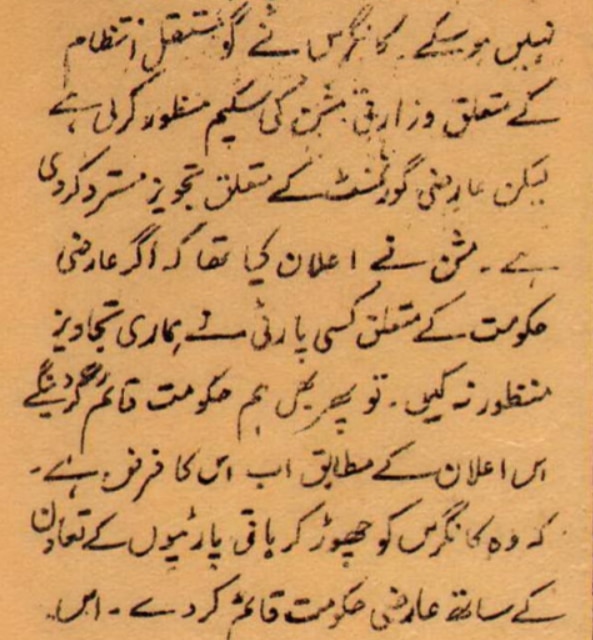 نہیں ہو سکے۔ کانگرس نے گو مستقل انتظام
کے متعلق وزارتی مشن کی سکیم منظور کرلی ہے
لیکن عارضی گورنمنٹ کے متعلق تجویز مسترد کردی
ہے۔ مشن نے اعلان کیا تھا کہ اگر عارضی
حکومت کے متعلق کسی پارٹی نے ہماری تجاویز
منظور نہ کیں۔ تو پھر بھی ہم حکومت قائم کردینگے
اس اعلان کے مطابق اب اس کا فرض ہے۔
کہ وہ کانگرس کو چھوڑ کر باقی پارٹیوں کے تعاون
کے ساتھ عارضی حکومت قائم کردے۔ اس